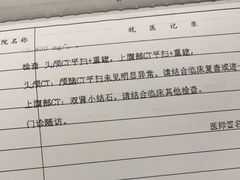 院名称 就医记录
检查 头颅CT平扫+重建，上腹部CT平扫+重建，
头颅CT：颅脑CT平扫未见明显异常，请结合临床复查或进一
上腹部CT：双肾小结石，请结合临床其他检查。
门诊随访。
医师签名